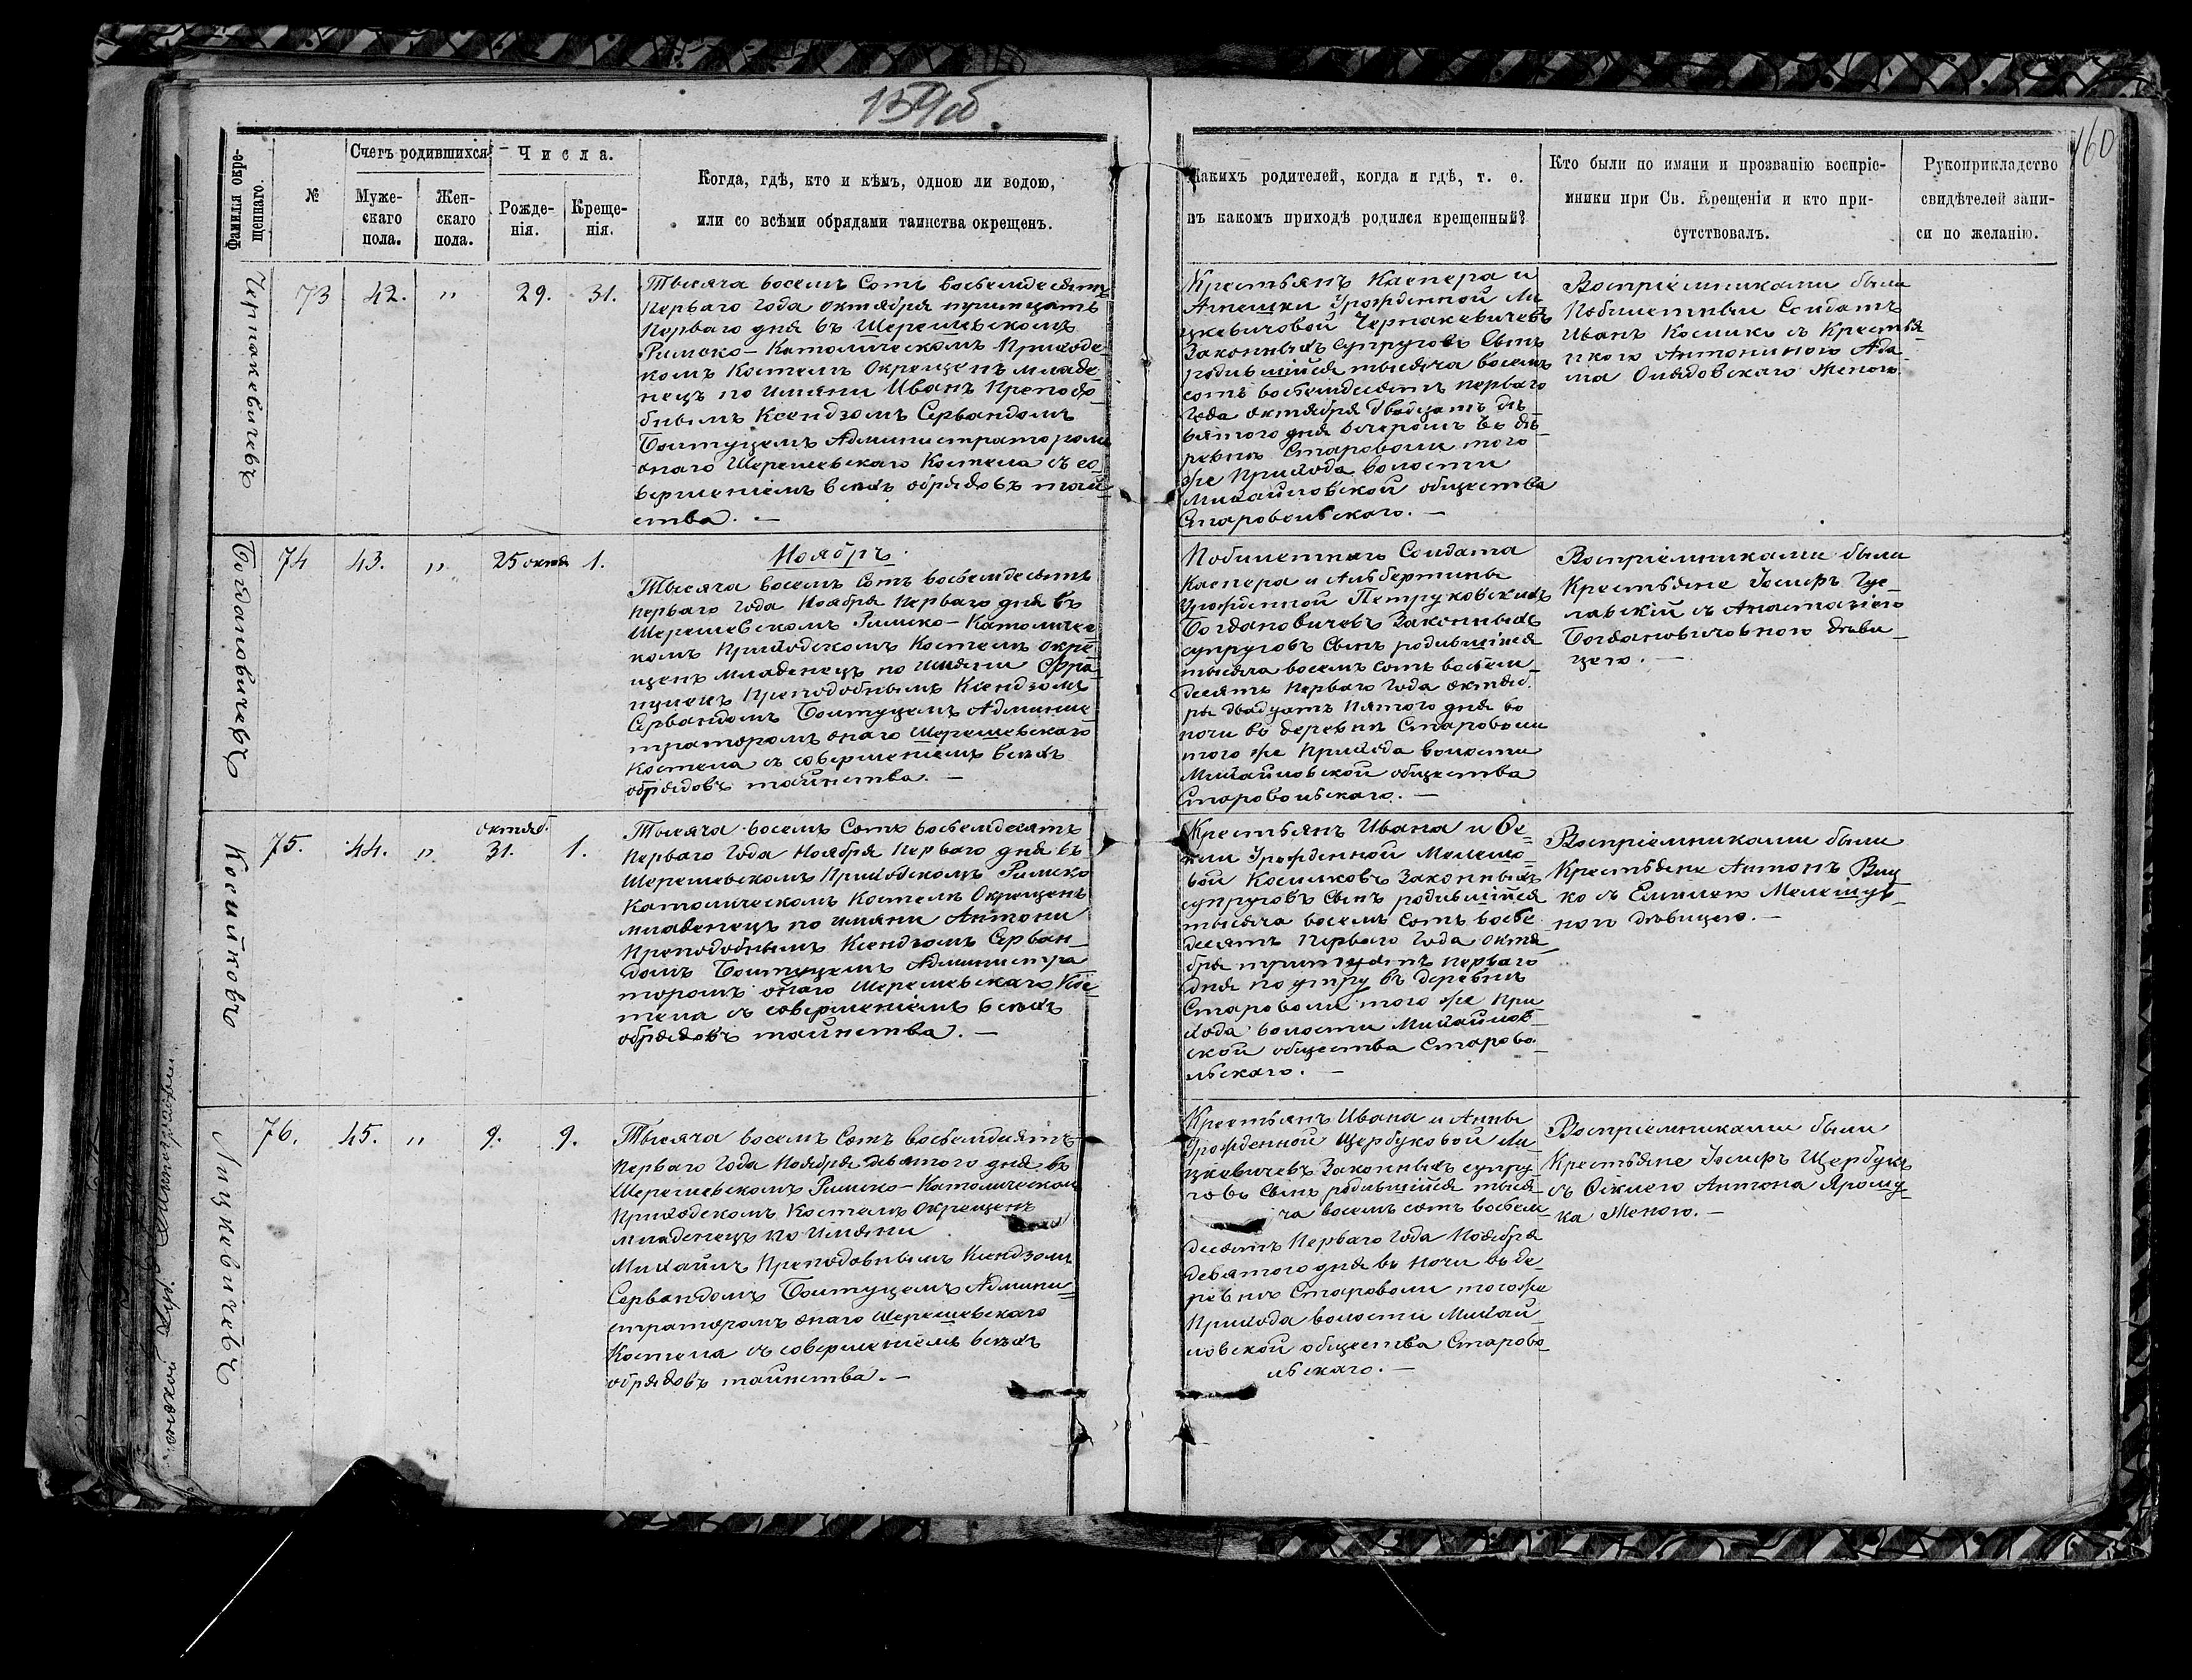 159об
160
Фамилія окре-
щеннаго.
№
Счетъ родившихся
Муже-
скаго
пола.
Жен-
скаго
пола.
Числа.
Рожде-
нія.
Креще-
нія.
Когда, гдѣ, кто и кѣмъ, одною ли водою,
или со всѣми обрядами таинства окрещенъ.
Какихъ родителей, когда и гдѣ, т. е.
въ какомъ приходѣ родился крещенный?
Кто были по имяни и прозванію воспріе-
мники при Св. Крещеніи и кто при-
сутствовалъ.
Рукоприкладство
свидѣтелей запи-
си по желанію.
Чернакевичевъ
73 42. " 29. 31.
Тысяча восемъ Сотъ восьемдесятъ
Перваго Года Октября тритцать
Перваго дня въ Шерешевскомъ
Римско-Католическомъ Приход-
скомъ Костелѣ Окрещенъ младе-
нецъ по имяни Иванъ Преподо-
бнымъ Ксендзомъ Сервандомъ
Болтуцемъ Администраторомъ
онаго Шерешевскаго Костела съ со-
вершеніемъ всѣхъ обрядовъ таин-
ства. —
Крестьянъ Каспера и
Агнешки Урожденной Ли-
цкевичовой Чернакевичевъ
Законныхъ супруговъ Сынъ
родившійся тысяча восемъ
сотъ восьемдесятъ перваго
Года Октября двадцать де-
вятого дня вечеромъ въ де-
ревнѣ Староволи того
же Прихода волости
Михайловской общества
Старовольскаго. —
Воспріемниками были
Побилетный Солдатъ
Иванъ Косинкъ съ Крестья-
нкою Антониною Ада-
ма Олядовскаго Женою.
Богдановичевъ
74 43. " 25 октя 1.
Ноябрь.
Тысяча восемъ Сотъ восьемдесятъ
перваго Года Ноября Перваго дня въ
Шерешевскомъ Римско-Католичес-
комъ Приходскомъ Костелѣ окре-
щенъ младенецъ по имяни Фра-
нцишекъ Преподобнымъ Ксендзомъ
Сервандомъ Болтуцемъ Админис-
траторомъ онаго Шерешевскаго
Костела съ совершеніемъ всѣхъ
обрядовъ таинства. —
Побилетнаго Солдата
Каспера и Альбертины
Урожденной Петруковскихъ
Богдановичевъ Законныхъ
супруговъ Сынъ родившійся
тысяча восемъ сотъ восьем-
десятъ Перваго Года октяб-
ря двадцать Пятого дня во
ночи въ деревнѣ Староволи
того же Прихода волости
Михайловской общества
Старовольскаго. —
Воспріемниками были
Крестьяне Іосифъ Гус-
лавскій съ Анастазіею
Богдановичовною дѣви-
цею. —
Косинковъ
75. 44. " октяб. 31. 1.
Тысяча восемъ Сотъ восьемдесятъ
Перваго Года Ноября Перваго дня въ
Шерешевскомъ Приходскомъ Римско
Католическомъ Костелѣ Окрещенъ
младенецъ по имяни Антони
Преподобнымъ Ксендзомъ Серван-
домъ Болтуцемъ Администра
торомъ онаго Шерешевскаго Кос-
тела съ совершеніемъ всѣхъ
обрядовъ таинства. —
Крестьянъ Ивана и Ѳе-
кли Урожденной Мелешо-
вой Косинковъ Законныхъ
супруговъ Сынъ родившійся
тысяча восемъ Сотъ восьм
десятъ Перваго Года октя-
бря тритцать перваго
дня по утру въ деревнѣ
Староволи того же При
хода волости Михайлов-
ской общества Старово-
льскаго. —
Воспріемниками были
Крестьяне Антонъ Виц-
ко съ Емилею Мелешув-
ною дѣвицею. —
Лицкевичевъ
76. 45. " 9. 9.
Тысяча восемъ Сотъ восьемдесятъ
Перваго Года Ноября девятого дня въ
Шерешевскомъ Римско-Католическом
Приходскомъ Костелѣ Окрещенъ
младенецъ по Имяни
Михаилъ Преподобнымъ Ксендзомъ
Сервандомъ Болтуцемъ Админи-
страторомъ онаго Шерешевскаго
Костела съ совершеніемъ всѣхъ
обрядовъ таинства. —
Крестьянъ Ивана и Анны
Урожденной Щербуковой Ли-
цкевичевъ Законныхъ супру-
говъ Сынъ родившійся тыся-
ча восемъ сотъ восьем-
десятъ Перваго Года Ноября
девятого дня въ ночи въ де-
ревнѣ Староволи того же
Прихода волости Михай-
ловской общества Старово-
льскаго. —
Воспріемниками были
Крестьяне Іосифъ Щербукъ
съ Ѳеклею Антона Ярошу-
ка Женою. —